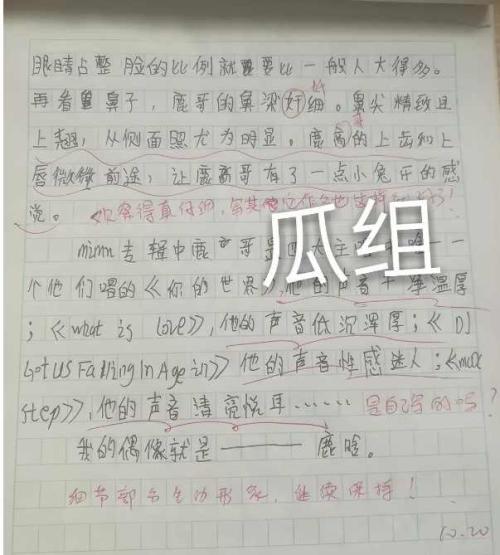 眼睛占整脸的比例就要比一般人大得多。
再看鼻子，鹿哥的鼻梁好细。鼻尖精致且
上翘，从侧面照尤为明显。鹿哥的上齿和上
唇微微前途，让鹿哥哥有了一点小兔牙的感
觉。观察得真仔细，
瓜组
mimn专辑中鹿哥是四大主唱
个他们唱的《你的世界》，他的声音十分温厚
；《what is love》，他的声音低沉浑厚；《DJ
Got US Falling In Age in》他的声音性感迷人；《max
step》，他的声音清亮悦耳……是自己写的吗？
我的偶像就是——鹿晗。
细节部分生动形象，继续保持！
10.20